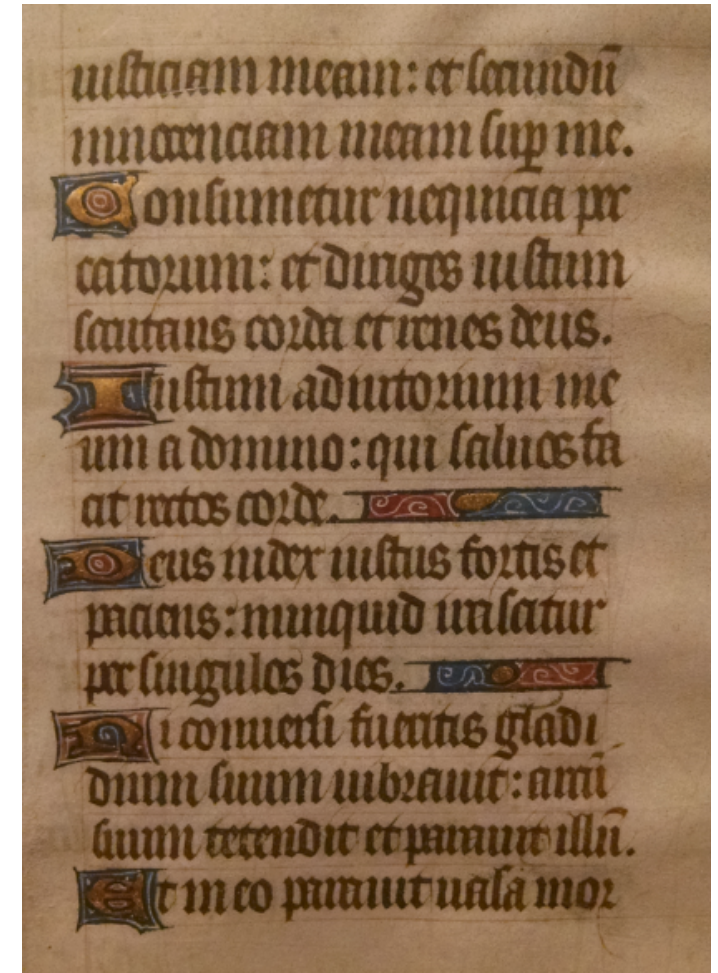 iusticiam meam: et secundū
innocenciam meam suꝑ me.
Consumetur nequicia pec
catorum: et diriges iustum
scrutans corda et renes deus.
Iustum adiutorium me
um a domino: qui saluos fa
cit rectos corde.
Deus iudex iustus fortis et
paciens: nunquid irascitur
per singulos dies.
Ni conuersi fueritis gladi
dium suum uibrauit: arcū
suum tetendit et parauit illū.
Et in eo parauit uasa mor